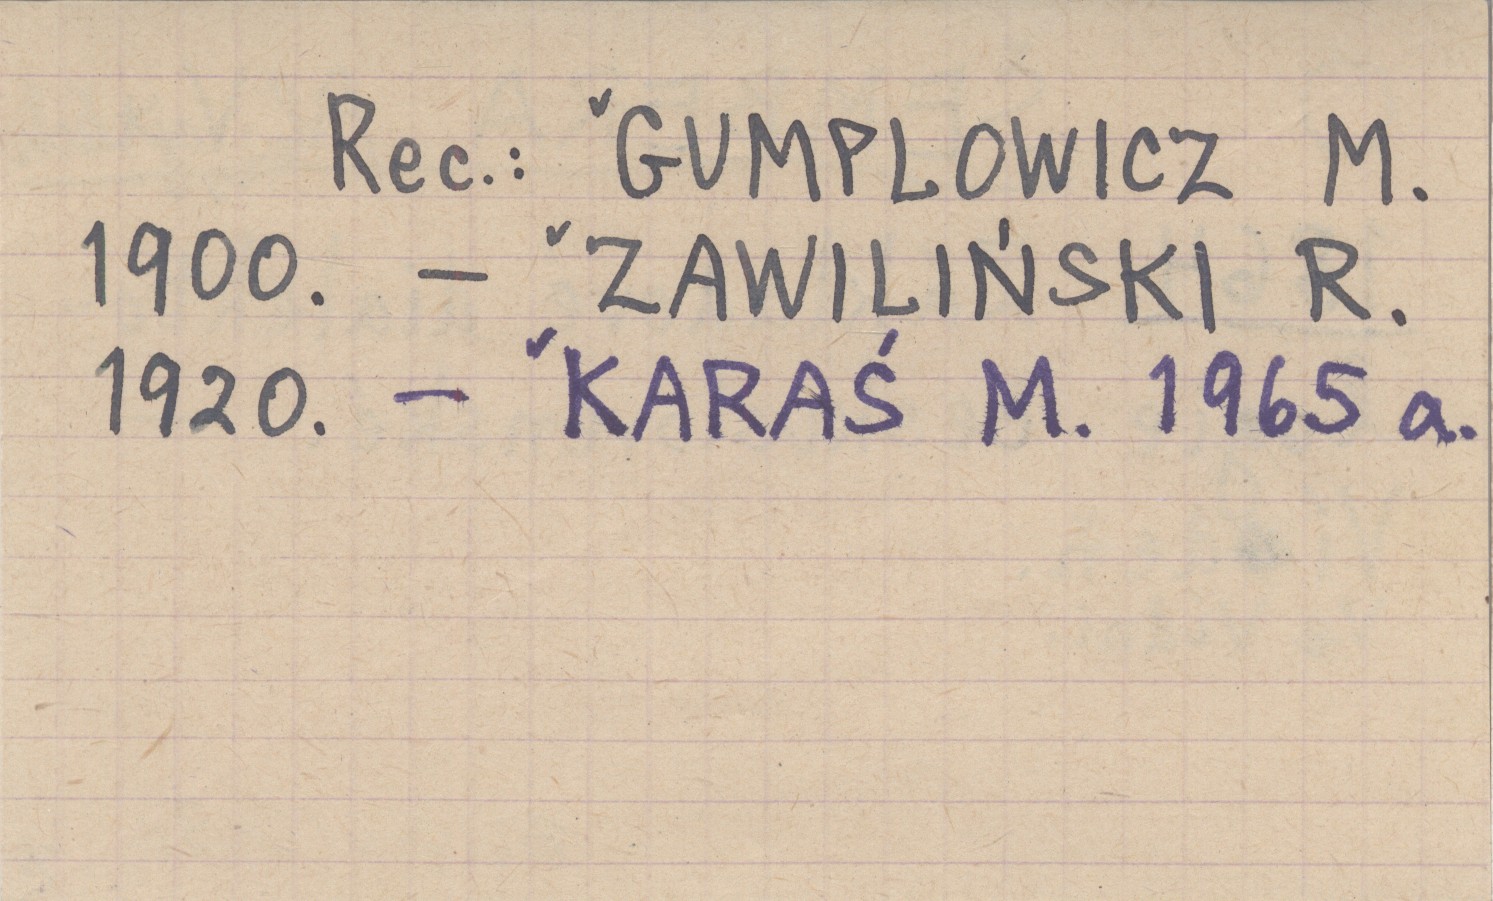 Rec.: ˇGUMPLOWICZ M.
1900. — ˇZAWILIŃSKI R.
1920. — ˇKARAŚ M. 1965 a.